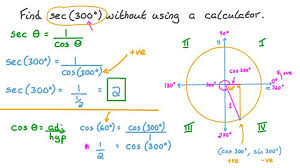 Find sec(300°) without using a calculator.
sec θ = 1/cos θ
+ve
sec(300°) = 1/cos(300°)
sec(300°) = 1/(1/2) = 2
cos θ = adj/hyp
cos(60°) = cos(300°)/1
1/2 = cos(300°)
II
90°
I
180°
cos300°
0°
360°
1
III
270°
IV
(cos 300°, sin 300°)
+ve
-ve